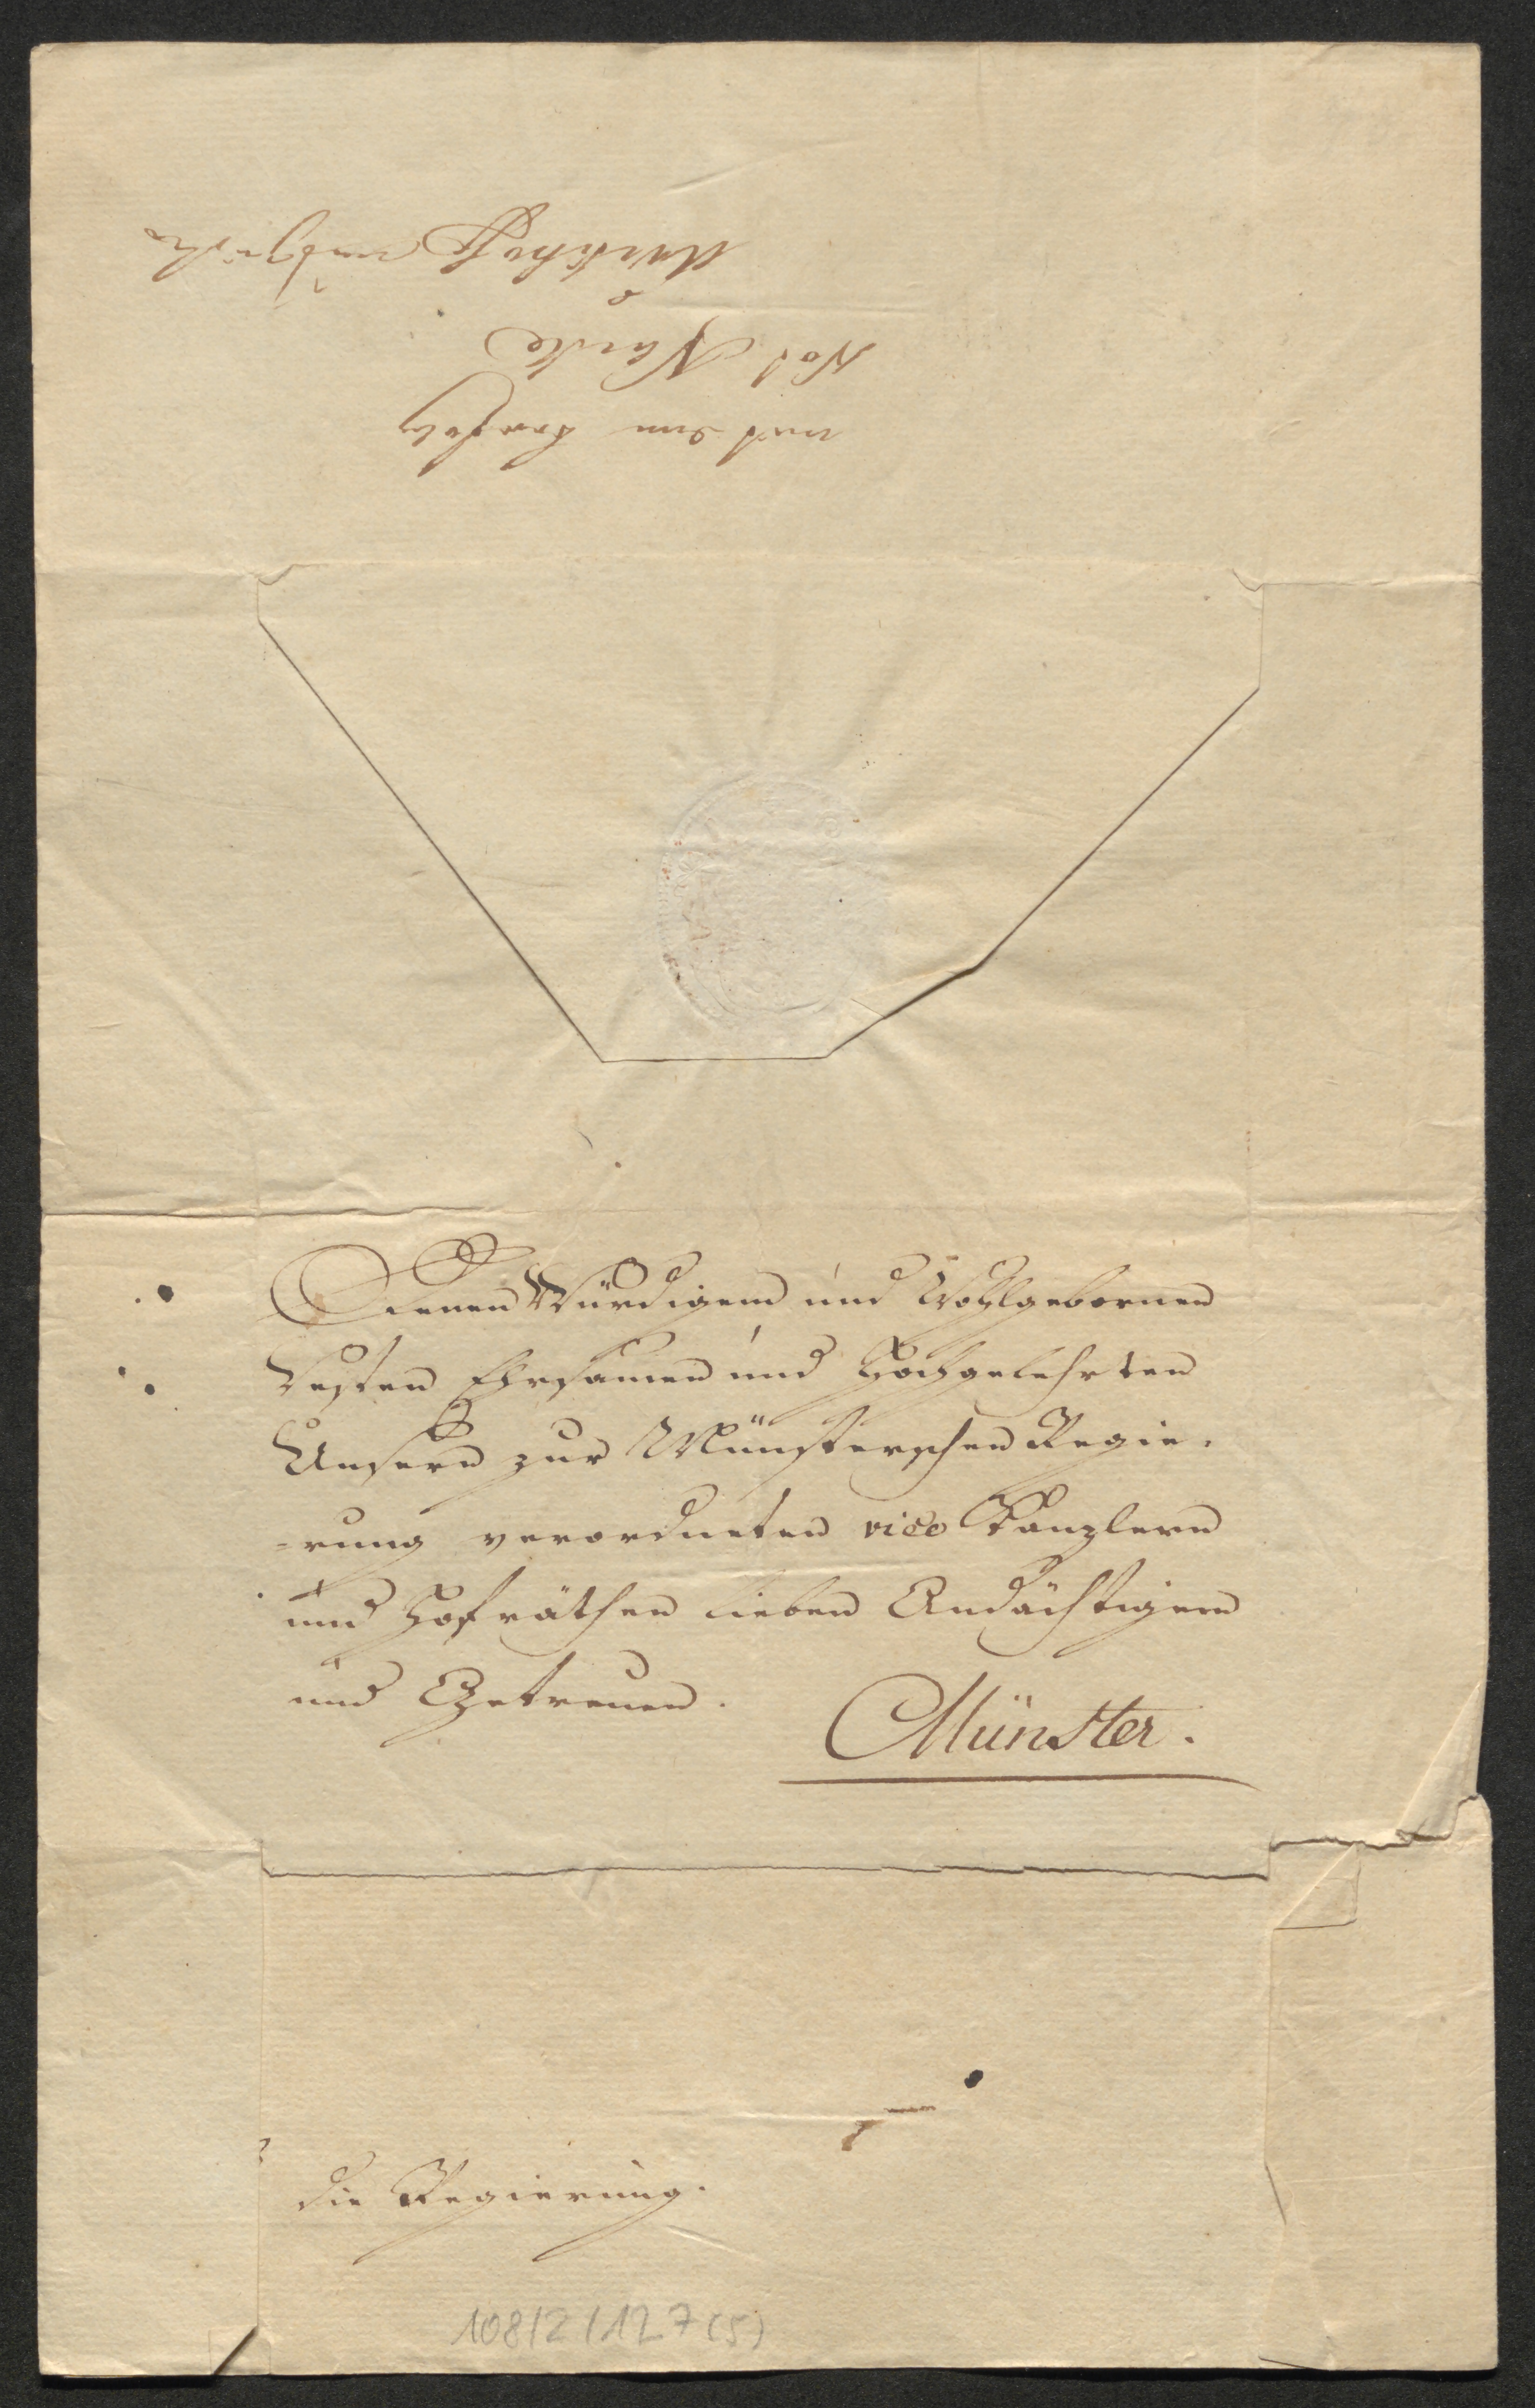 Denen Würdigen und Wohlgebornen
Vesten Ehrsamen und Hochgelehrten
Unseren zur Münsterschen Regie-
-rung verordneten vice Kanzleren
und Hofräthen lieben Andächtigen
und Getreuen.
Münster.
die Regierung.
108/2/127(5)